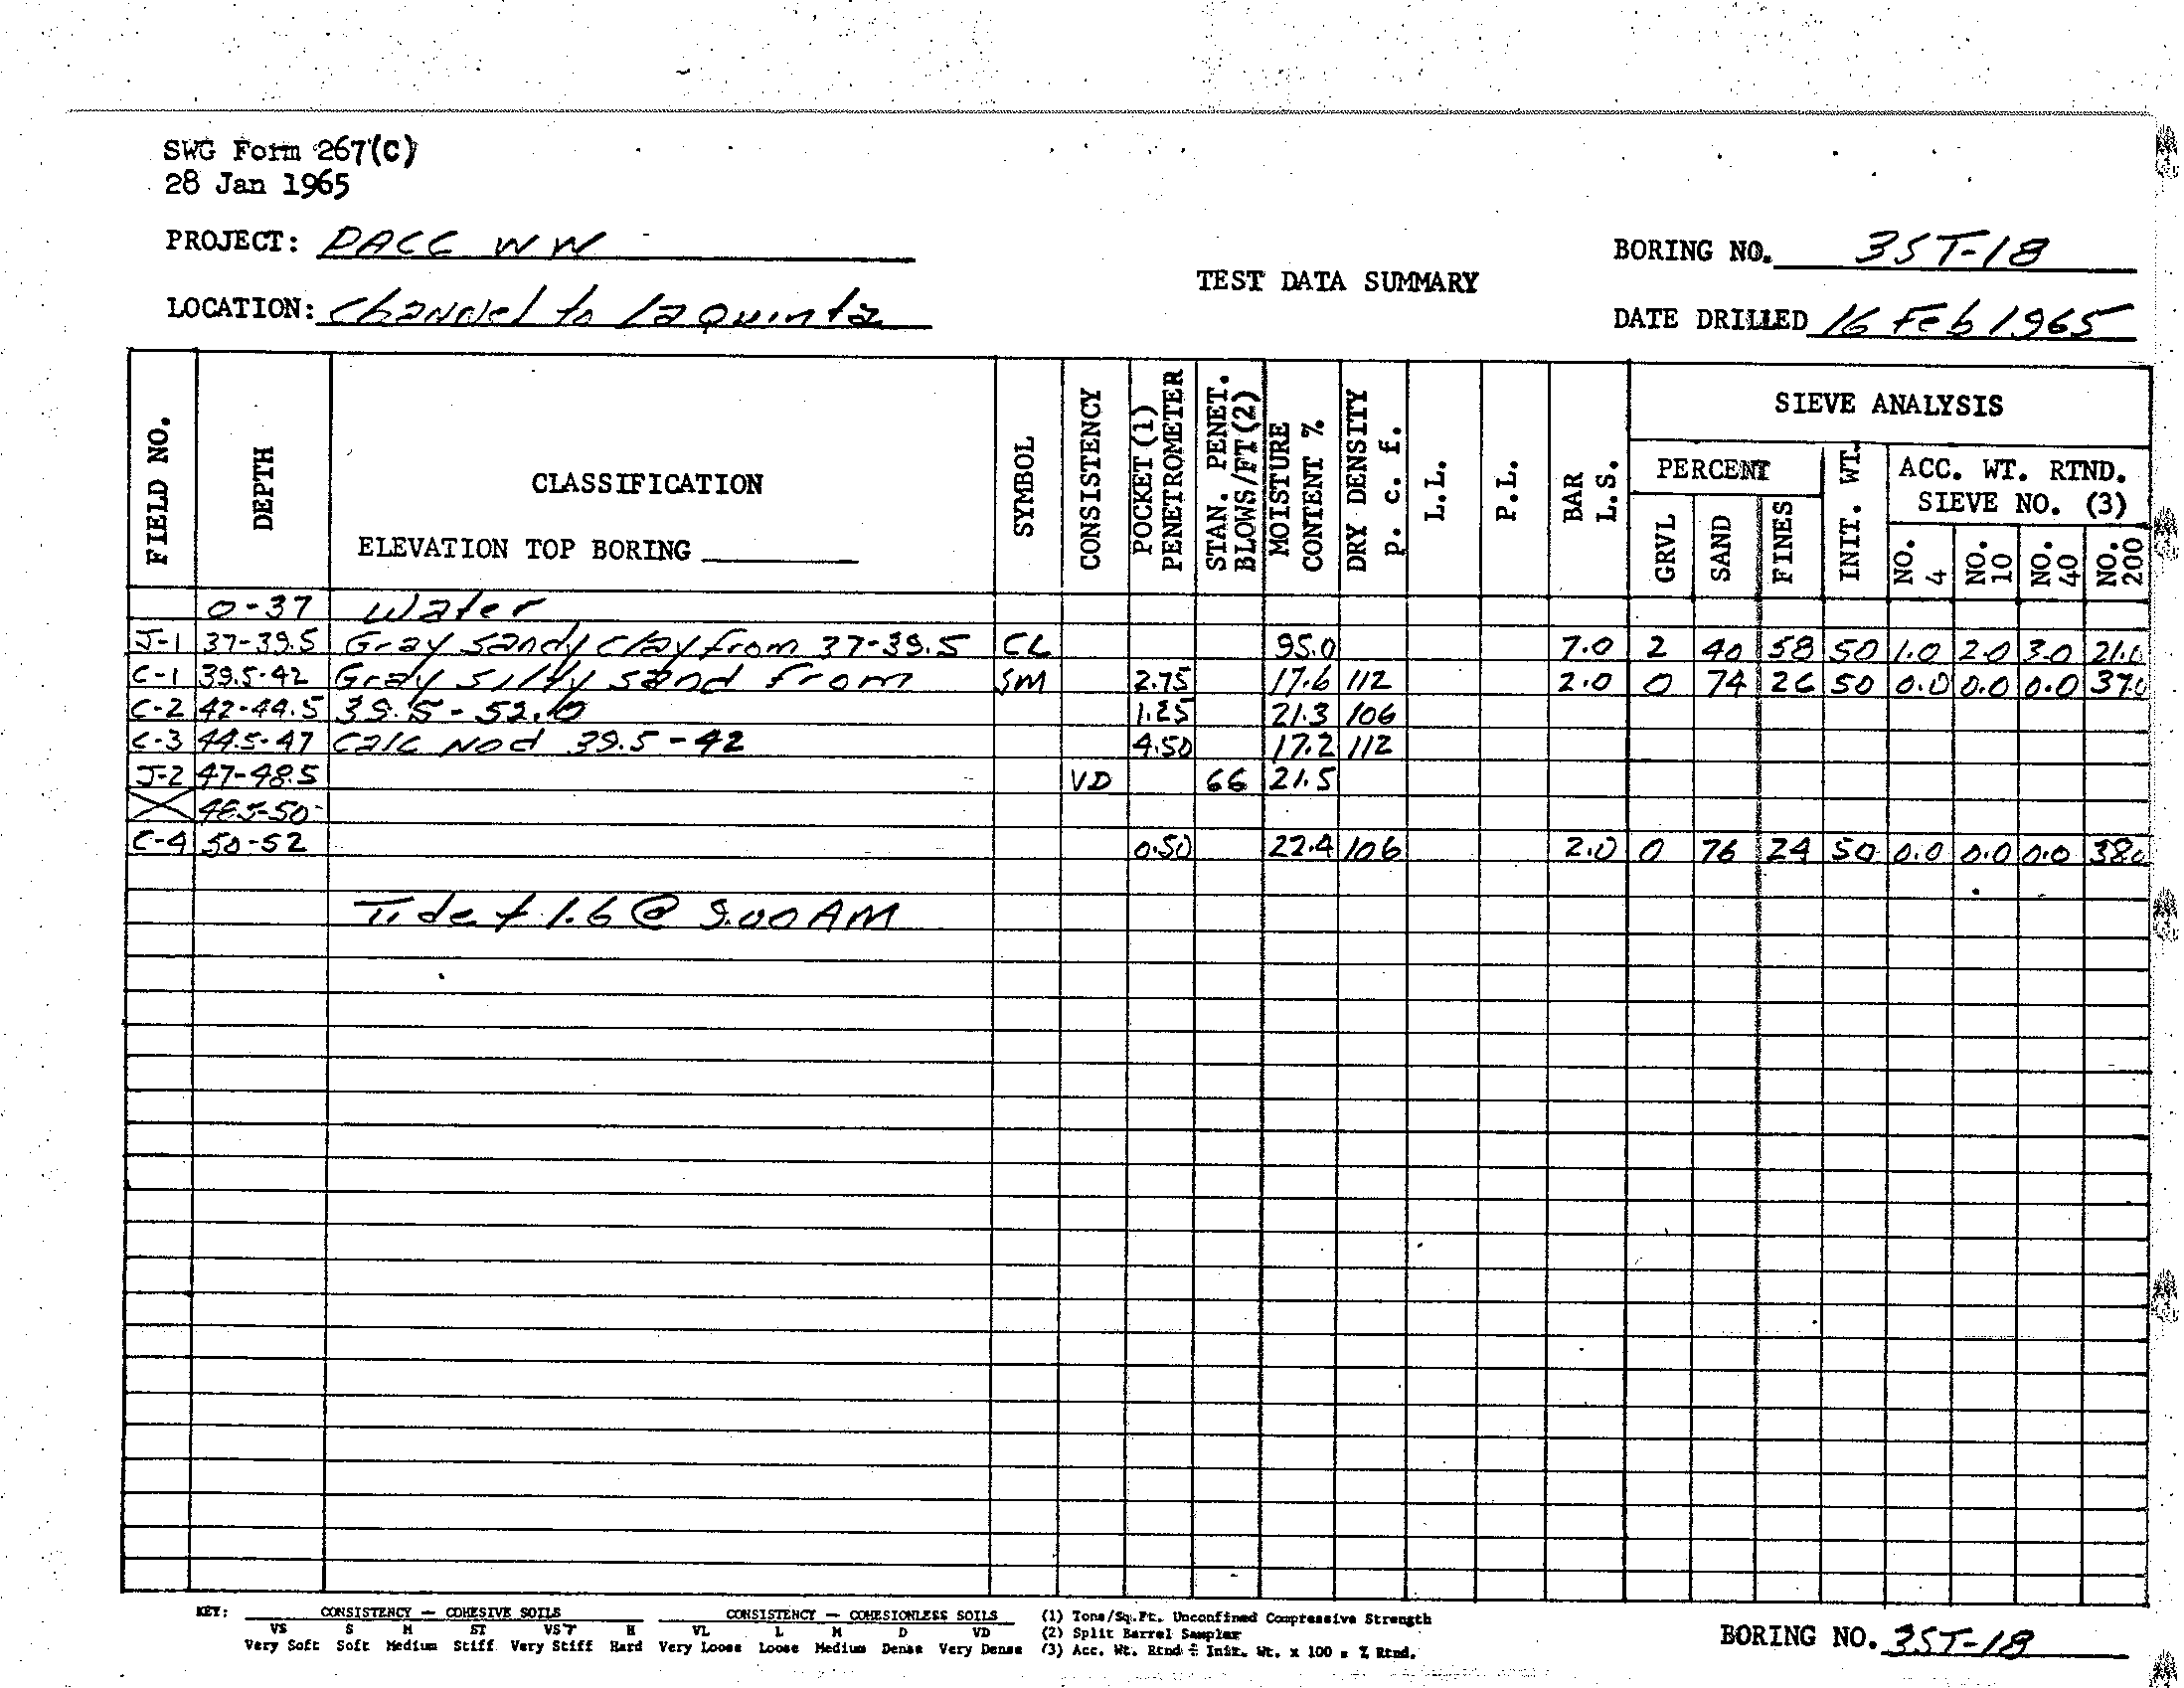 SWG Form 267(C)
28 Jan 1965
PROJECT: PACC WW
BORING NO. 3ST-18
TEST DATA SUMMARY
LOCATION: Channel to La Quinta
DATE DRILLED 16 Feb 1965
FIELD NO. DEPTH CLASSIFICATION SYMBOL CONSISTENCY POCKET (1) PENETROMETER STAN. PENET. BLOWS/FT (2) MOISTURE CONTENT % DRY DENSITY p. c. f. L.L. P.L. BAR L.S. SIEVE ANALYSIS
ELEVATION TOP BORING
PERCENT INIT. WT. ACC. WT. RTND. SIEVE NO. (3)
GRVL SAND FINES NO. 4 NO. 10 NO. 40 NO. 200
0-37 Water
J-1 37-39.5 Gray sandy clay from 37-39.5 CL 95.0 7.0 2 40 58 50 1.0 2.0 3.0 21.0
C-1 39.5-42 Gray silty sand from SM 2.75 17.6 112 2.0 0 74 26 50 0.0 0.0 0.0 37.0
C-2 42-44.5 39.5-52.0 1.25 21.3 106
C-3 44.5-47 Calc Nod 39.5-42 4.50 17.2 112
J-2 47-48.5 VD 66 21.5
48.5-50
C-4 50-52 0.50 22.4 106 2.0 0 76 24 50 0.0 0.0 0.0 38.0
Tide + 1.6 @ 9:00 AM
KEY: CONSISTENCY — COHESIVE SOILS CONSISTENCY — COHESIONLESS SOILS (1) Tons/Sq.Ft. Unconfined Compressive Strength
VS S M ST VST H VL L M D VD (2) Split Barrel Sampler
Very Soft Soft Medium Stiff Very Stiff Hard Very Loose Loose Medium Dense Very Dense (3) Acc. Wt. Rtnd ÷ Init. Wt. x 100 = % Rtnd.
BORING NO. 3ST-18